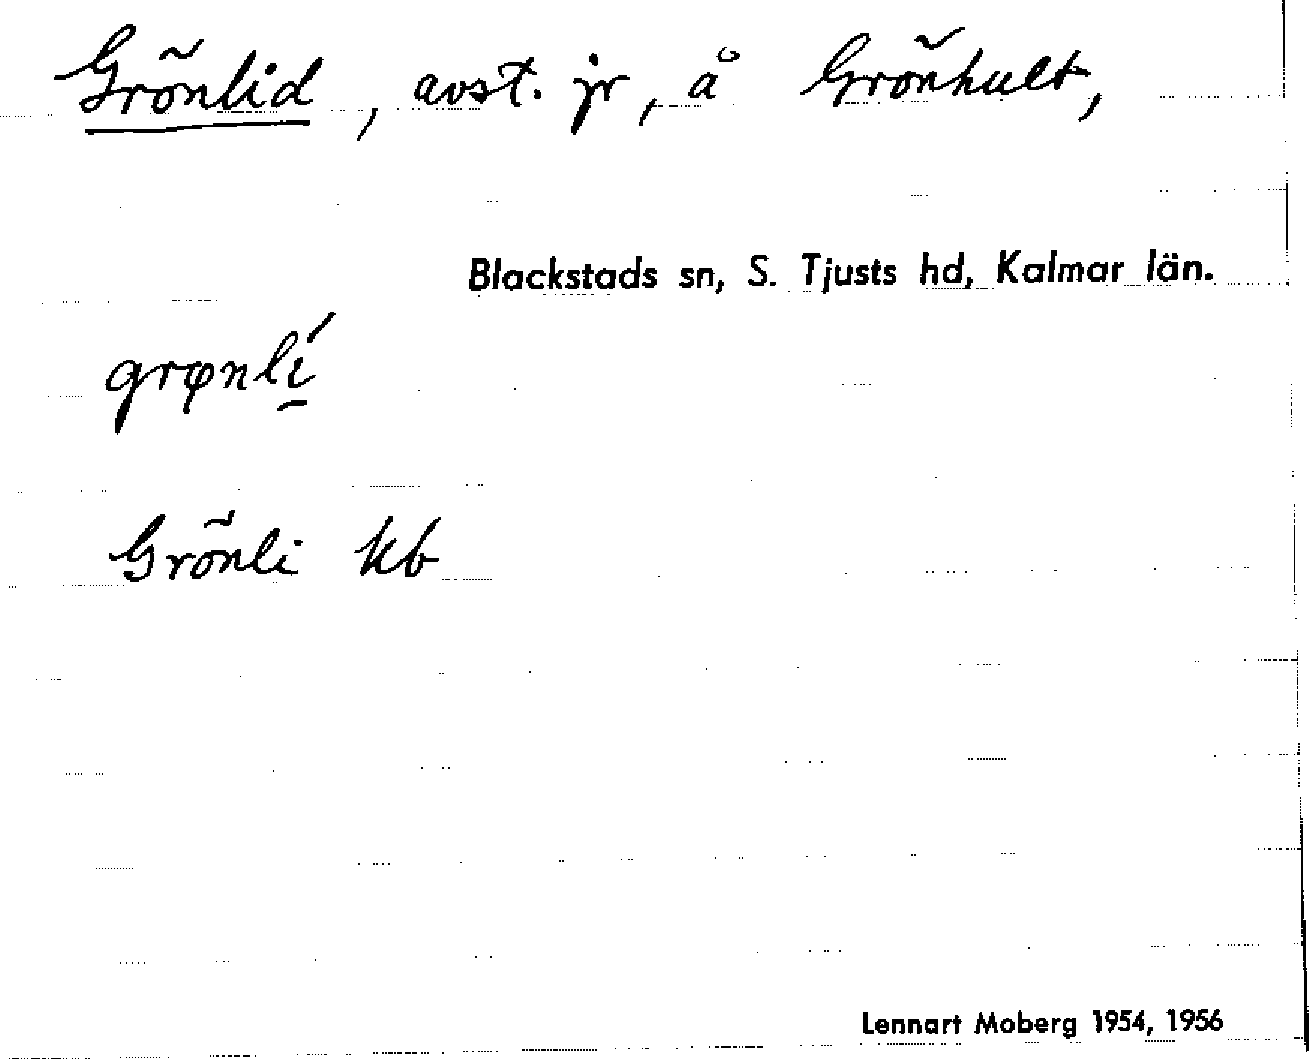 Grönlid, avst. jr, å Grönhult,
Blackstads sn, S. Tjusts hd, Kalmar län.
grφnlí̲
Grönli kb
Lennart Moberg 1954, 1956